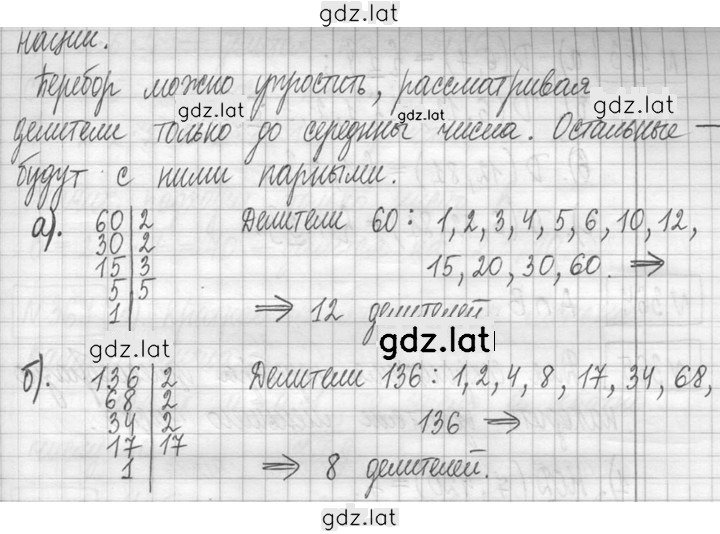 gdz.lat
нации.
Перебор можно упростить, рассматривая
gdz.lat
gdz.lat
делители только до середины числа. Остальные —
будут с ними парными.
а). 60 | 2 Делители 60 : 1, 2, 3, 4, 5, 6, 10, 12,
30 | 2
15 | 3 15, 20, 30, 60. ⇒
5 | 5
1 | ⇒ 12 делителей
gdz.lat
gdz.lat
б). 136 | 2 Делители 136 : 1, 2, 4, 8, 17, 34, 68,
68 | 2
34 | 2 136 ⇒
17 | 17
1 | ⇒ 8 делителей.
gdz.lat